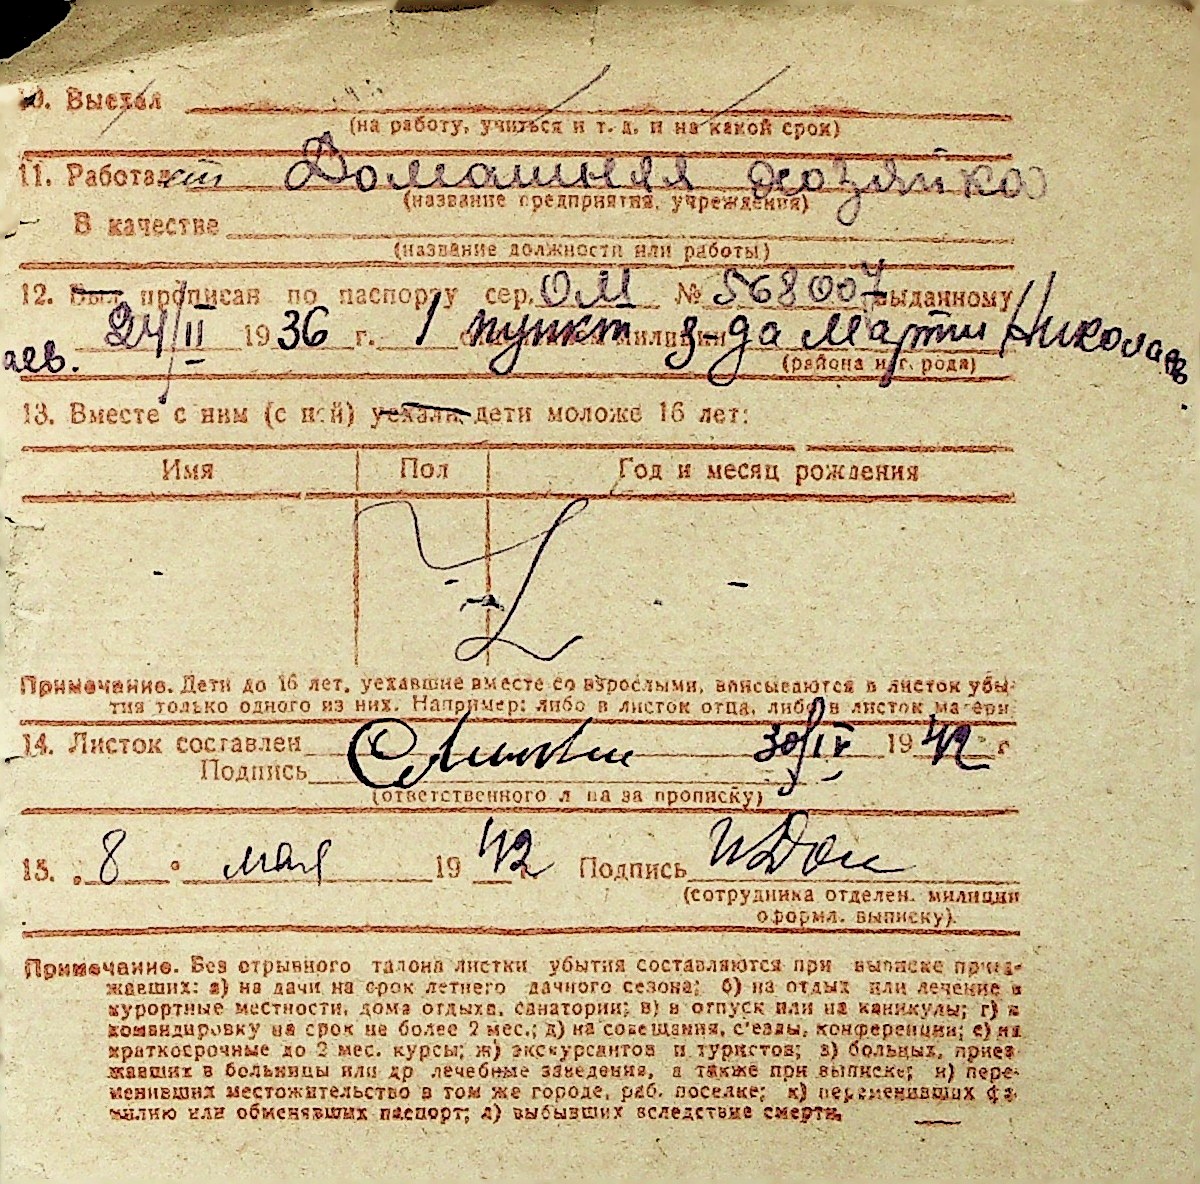 10. Выехал
(на работу, учиться и т. д. и на какой срок)
11. Работает Домашняя хозяйка
(название предприятия, учреждения)
В качестве
(название должности или работы)
12. Был прописан по паспорту сер. ОМ № 568007 выданному
24/II 1936 г. 1 пункт милиции з-да Марти Николаев
аев. (района и г. рода)
13. Вместе с ним (с ней) уехали дети моложе 16 лет:
Имя Пол Год и месяц рождения
Примечание. Дети до 16 лет, уехавшие вместе со взрослыми, вписываются в листок убы-
тия только одного из них. Например: либо в листок отца, либо в листок матери
14. Листок составлен 30/IV 1942 г
Подпись
(ответственного л ца за прописку)
15. „8" мая 1942 г. Подпись
(сотрудника отделен. милиции
оформл. выписку).
Примечание. Без отрывного талона листки убытия составляются при выписке приез-
жавших: а) на дачи на срок летнего дачного сезона; б) на отдых или лечение в
курортные местности, дома отдыха, санатории; в) в отпуск или на каникулы; г) в
командировку на срок не более 2 мес.; д) на совещания, с'езды, конференции; е) на
краткосрочные до 2 мес. курсы; ж) экскурсантов и туристов; з) больных, приез-
жавших в больницы или др лечебные заведения, а также при выписке; и) пере-
менивших местожительство в том же городе, раб. поселке; к) переменивших фа-
милию или обменявших паспорт; л) выбывших вследствие смерти.